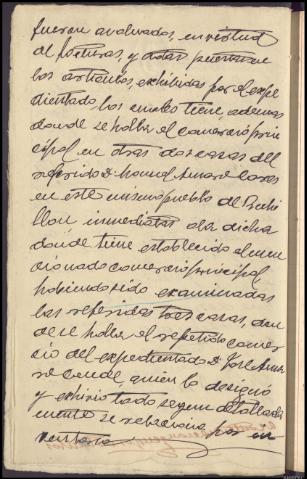 fueron avaluados, en virtud
de facturas, y
los artículos, exhibidos por el expe
dientado los cuales tiene, además
donde se halla el comercio prin
cipal en otras dos casas del
referido D. Manuel
en este mismo pueblo de
inmediatas a la dicha
donde tiene establecido el men
cionado comercio principal
habiendo sido examinadas
las referidas tres casas, don
de se halla el repetido comer
cio del expedientado D. José
Conde, quien lo designó
y exhibió todo segun detallada
mente se relaciona por in
ventario